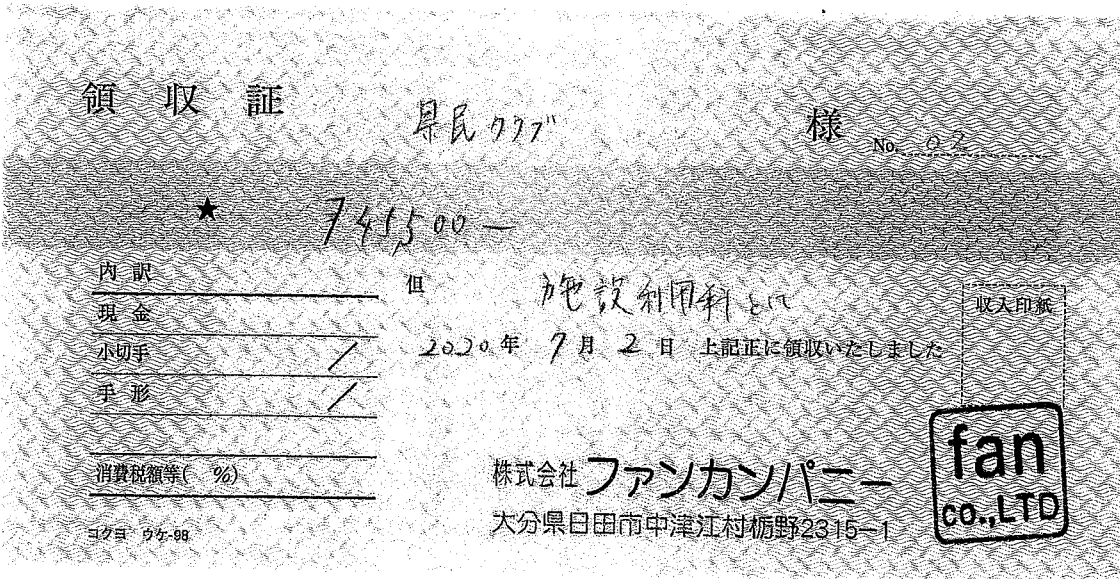 領収証 県民クラブ 様 No. 02
★ ¥45,500—
内訳
現金
小切手 /
手形 /
消費税額等( %)
コクヨ ウケ-98
但 施設利用料として
2020年 7月 2日 上記正に領収いたしました
収入印紙
株式会社 ファンカンパニー
大分県日田市中津江村栃野2315-1
fan
co.,LTD